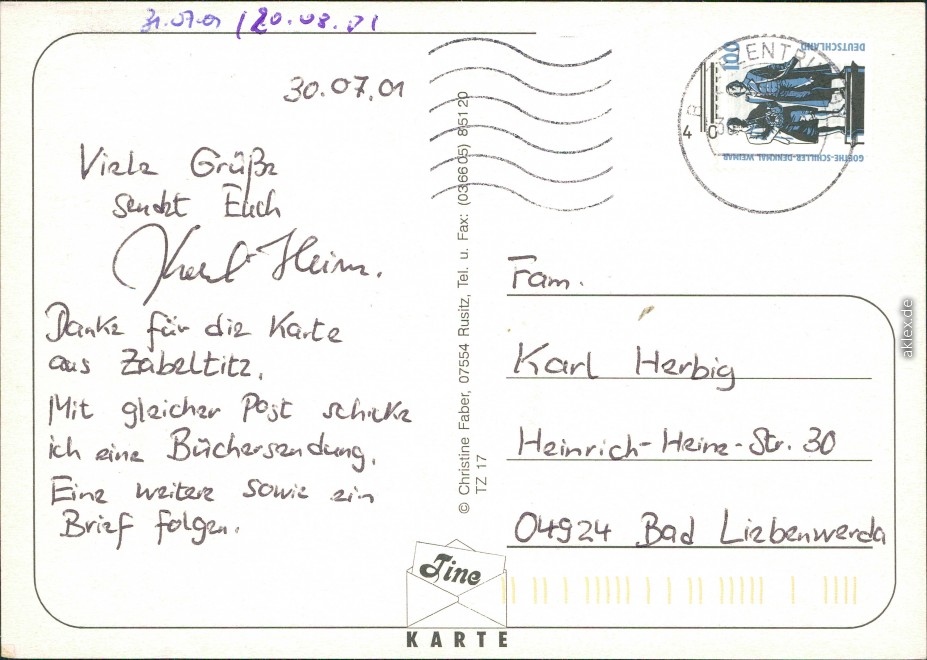 31.07.01 / 20.08.01
30.07.01
Viele Grüße
sendet Euch
Karl-Heinz.
Danke für die Karte
aus Zabeltitz.
Mit gleicher Post schicke
ich eine Büchersendung.
Eine weitere sowie ein
Brief folgen.
© Christine Faber, 07554 Rusitz, Tel. u. Fax: (036605) 85120
TZ 17
100
DEUTSCHLAND
GOETHE-SCHILLER-DENKMAL WEIMAR
BRIEFZENTRUM
Fam.
Karl Herbig
Heinrich-Heine-Str. 30
04924 Bad Liebenwerda
Tine
KARTE
aklex.de